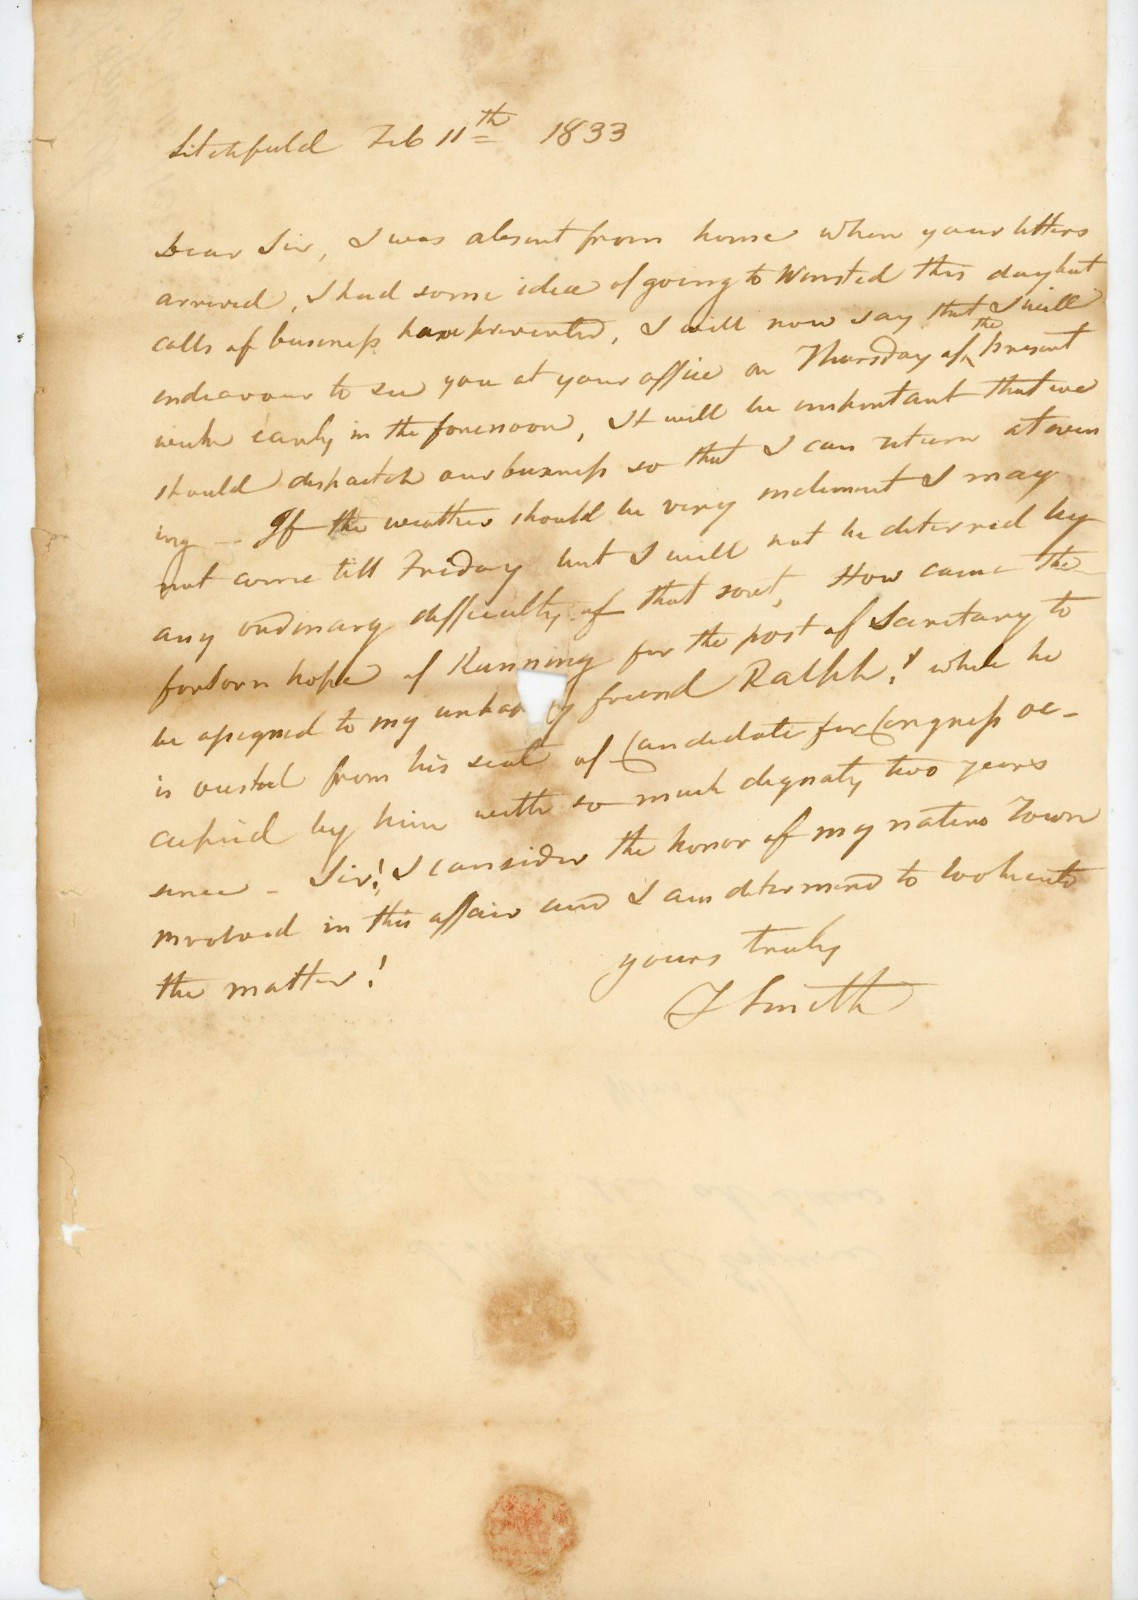 Litchfield Feb 11th 1833
Dear Sir, I was absent from home when your letters
arrived, I had some idea of going to Winsted this day but
calls of business have prevented, I will now say that I will
endeavour to see you at your office on Thursday of the present
week early in the forenoon, It will be important that we
should dispatch our business so that I can return at even
ing -- If the weather should be very inclement I may
not come till Friday but I will not be deterred by
any ordinary difficulty of that sort, How came the
forlorn hope of Running for the post of Secretary to
be assigned to my unhap y friend Ralph? while he
is ousted from his seat of Candidate for Congress oc-
cupied by him with so much dignaty two years
since - Sir! I consider the honor of my native Town
involved in this affair and I am determined to look into
the matter!
yours truly
T Smith